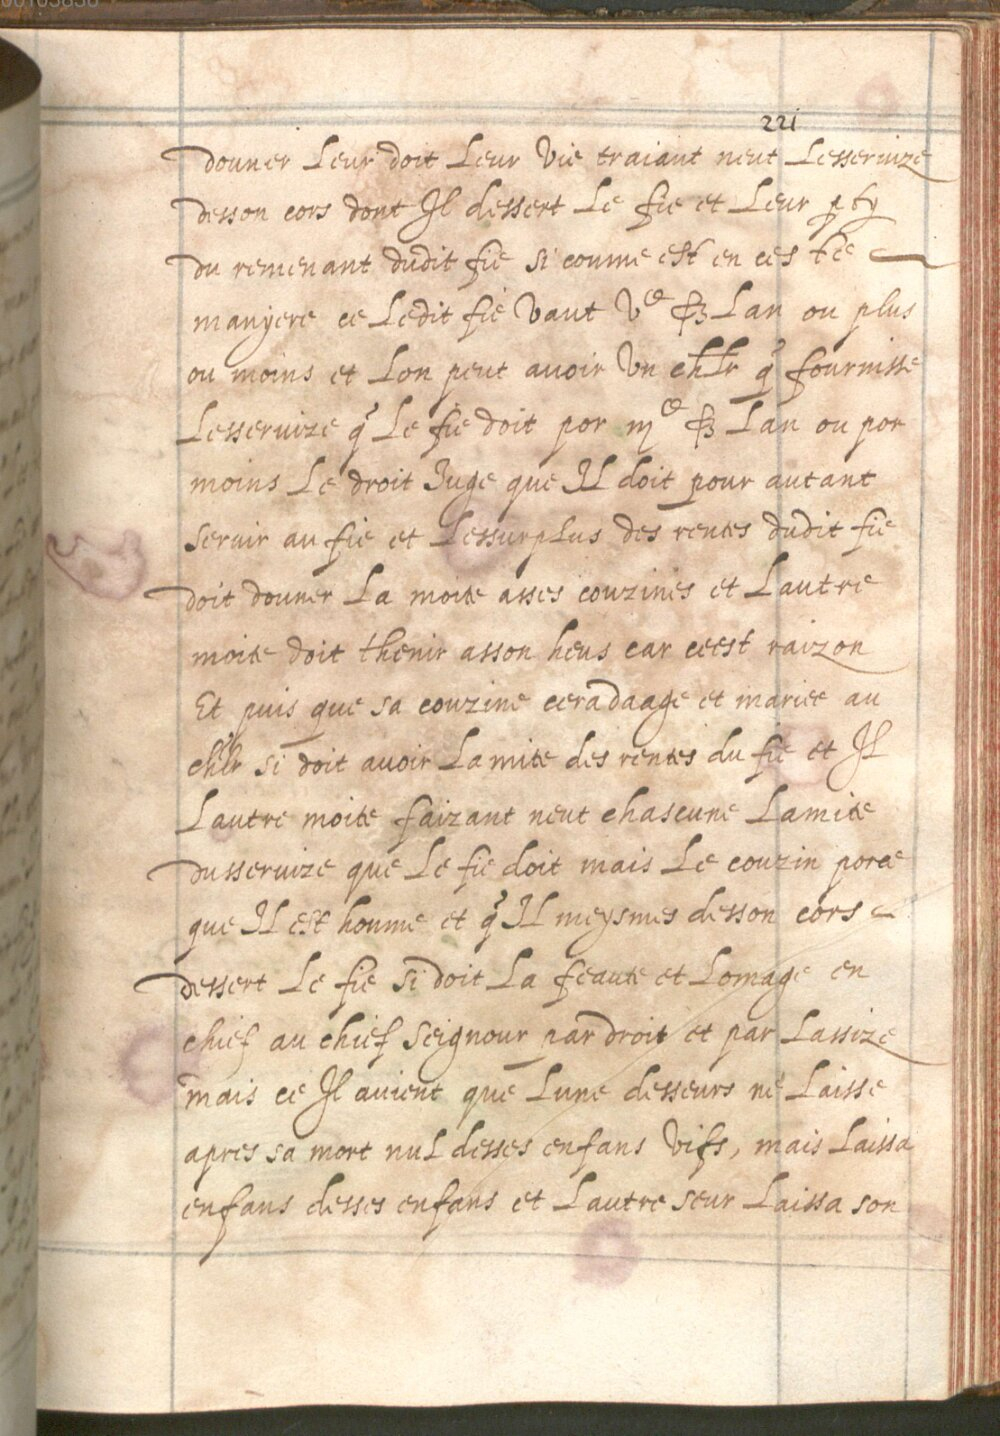 221
douner Leur doit Leur Vie traiant neut Lesseruize
desson cors dont Il dessert Le fie et Leur
du remenant dudit fie si coume est en ces
manyere ce Ledit fie Vaut Vc Lan ou plus
ou moins et Lon peut auoir Vn chlr q fournisse
Lesseruize q Le fie doit por Lan ou por
moins Le droit Iuge que Il doit pour autant
seruir au fie et Lessurplus des rentes dudit fie
doit douner La moite asses couzines et Lautre
moite doit thenir asson heus car ceest raizon
Et puis que sa couzine ceradaage et mariee au
chlr si doit auoir Lamite des rentes du fie et Il
Lautre moite faizant neut chascune Lamite
dusseruize que Le fie doit mais Le couzin porce
que Il est houme et q Il meysmes desson cors
dessert Le fie si doit La feaute et Lomage en
chief au chief seignour par droit et par Lassize
mais ce Il auient que Lune desseurs ne Laisse
apres sa mort nul desses enfans Vifs, mais Laissa
enfans desses enfans et Lautre seur Laissa son